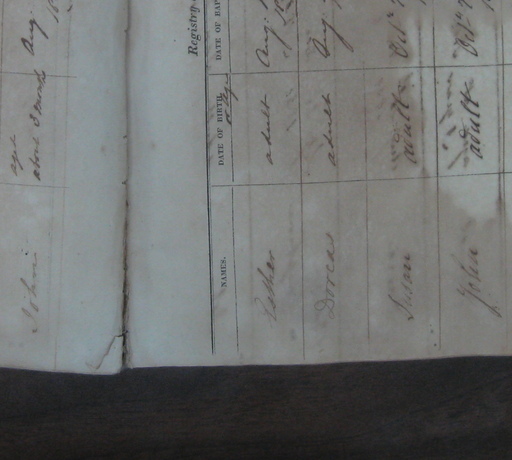 John aged about 3 months Aug.
Registry
NAMES. DATE OF BIRTH, or Age DATE OF BAP
Esther adult Aug.
Dorcas adult Aug
Susan adult Oct.
John adult Oct.